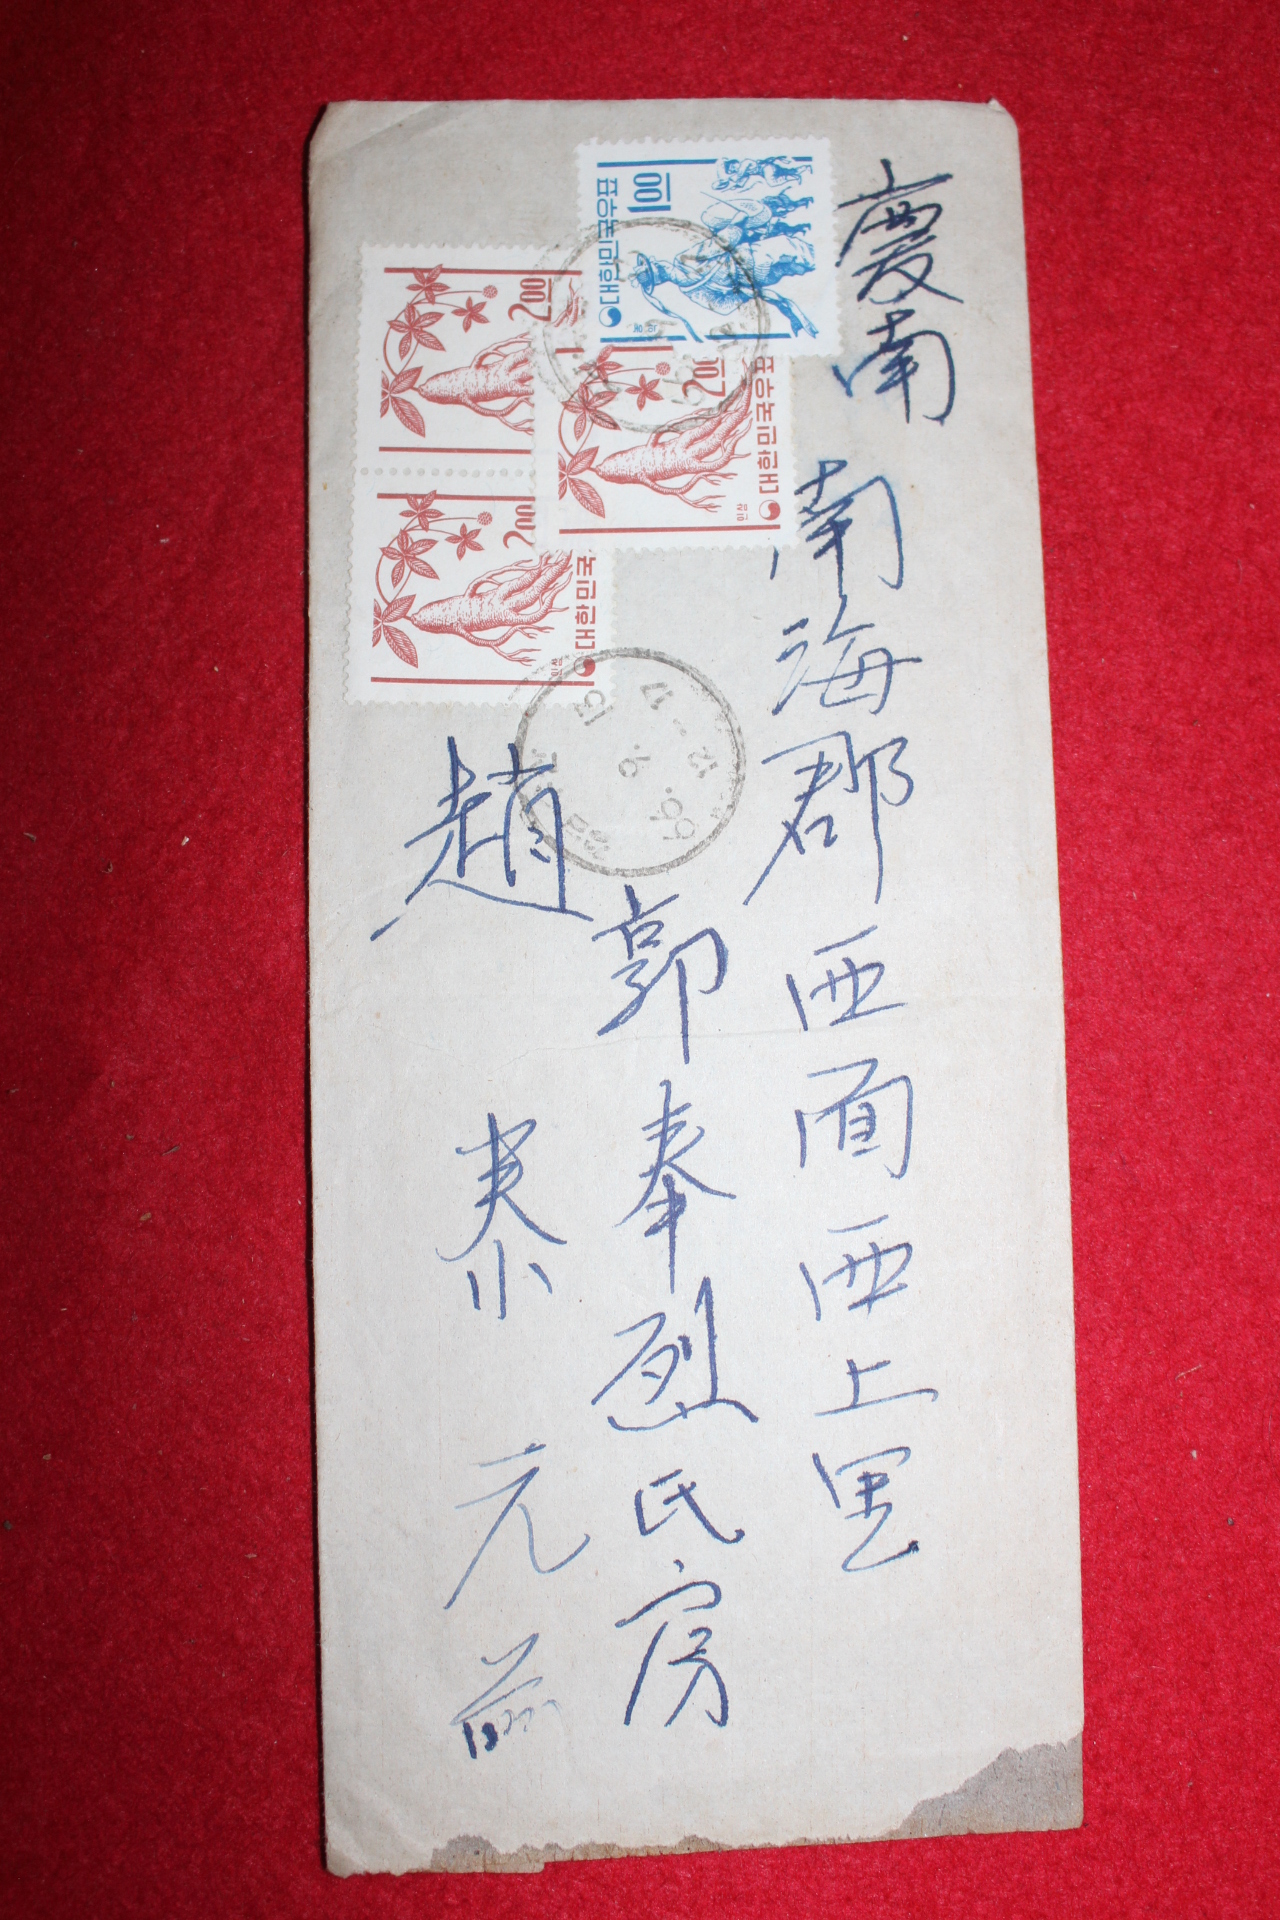 慶南 南海郡西面西上里
郭奉烈氏房
趙泰元 前
1.00
대한민국우표
농악
2.00
2.00
대한민국
인삼
2.00
대한민국우표
인삼
66.6.